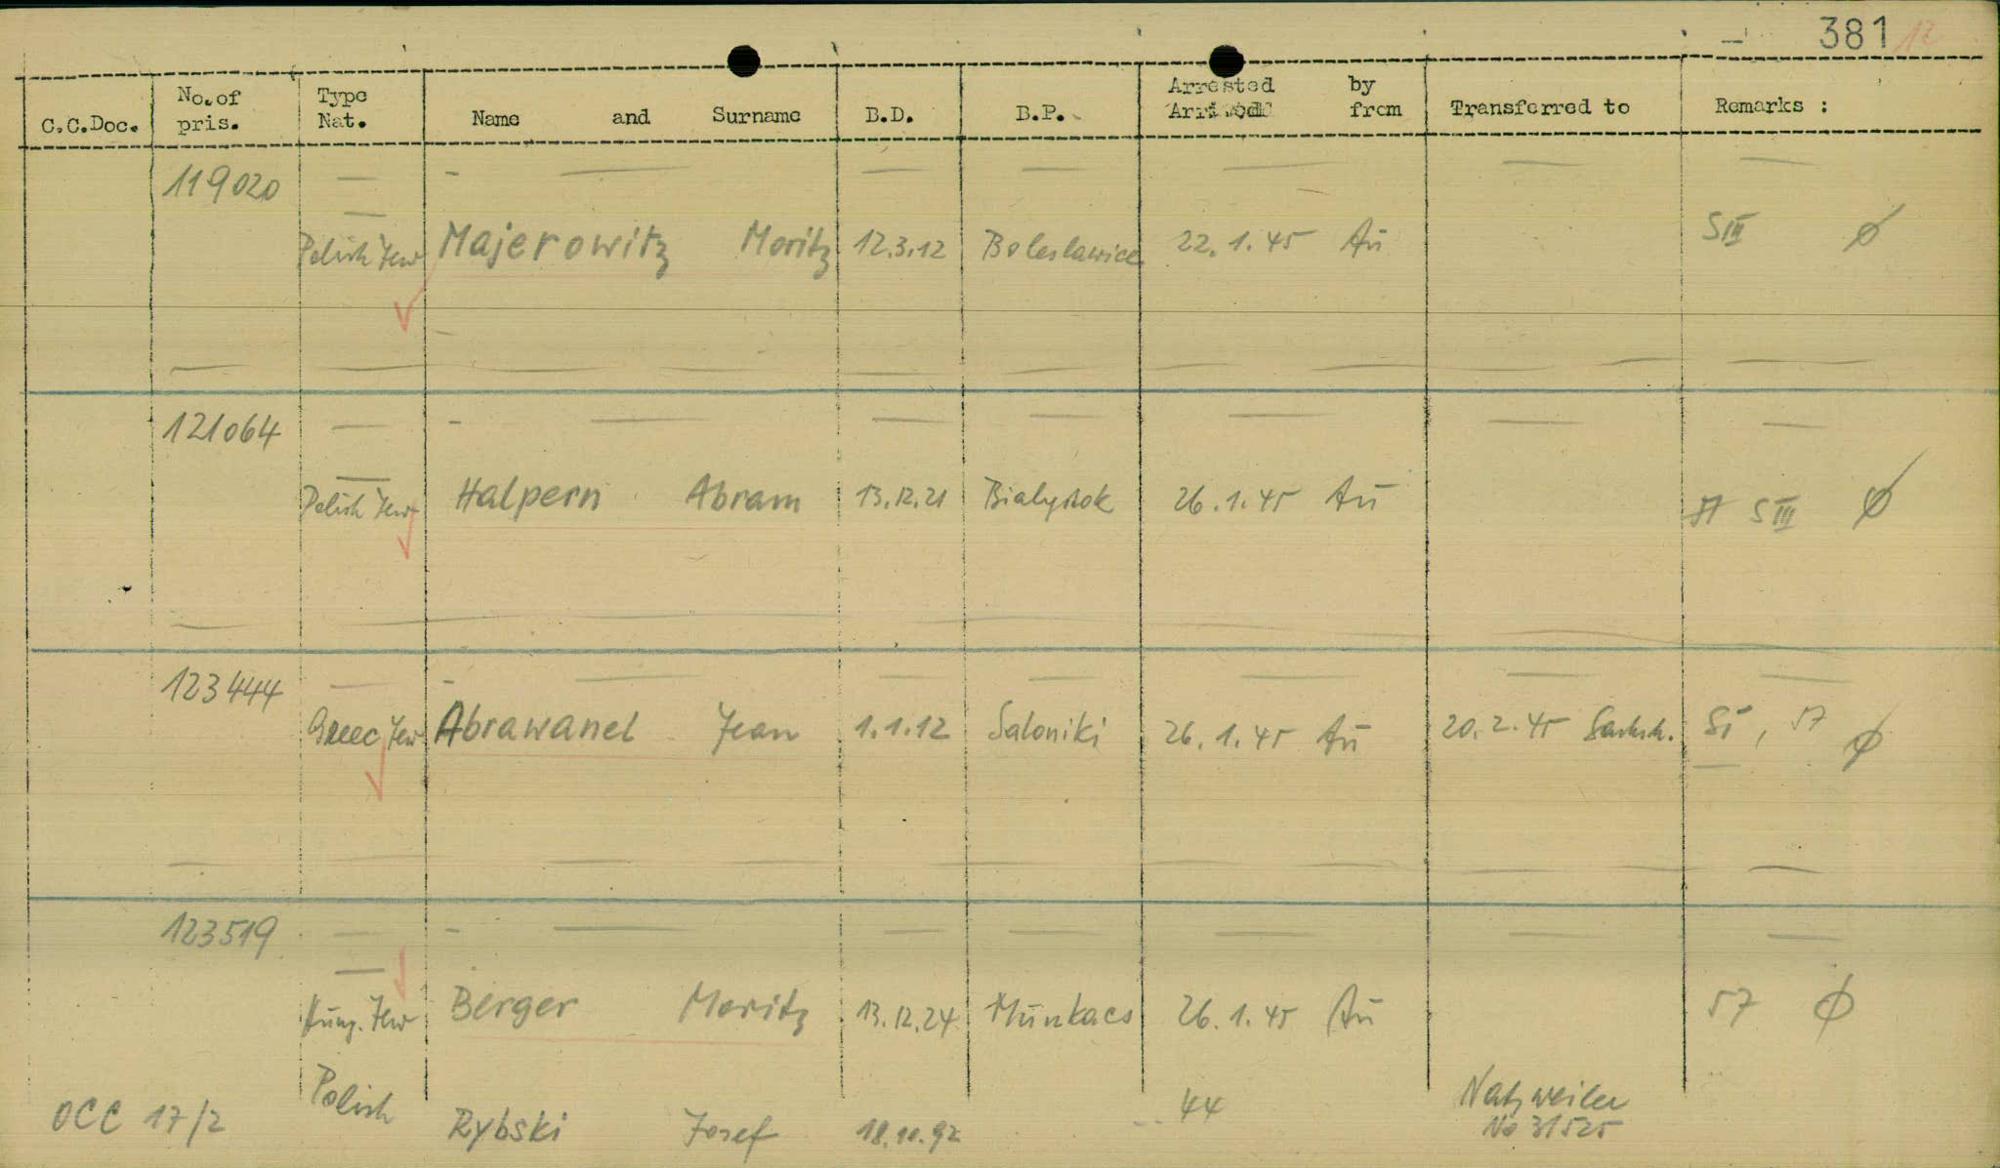 381 12
C.C.Doc. No. of pris. Type Nat. Name and Surname B.D. B.P. Arrested by Arrived from Transferred to Remarks :
119020
Polish Jew Majerowitz Moritz 12.3.12 Boleslawice 22.1.45 Au SIII Ø
121064
Polish Jew Halpern Abram 13.12.21 Bialystok 26.1.45 Au SIII Ø
123444
Greec Jew Abrawanel Jean 1.1.12 Saloniki 26.1.45 Au 20.2.45 Sachsh. 57 Ø
123519
Hung. Jew Berger Moritz 13.12.24 Munkacs 26.1.45 Au 57 Ø
Polish Rybski Josef 18.10.92 44 Natzweiler
No 31525
OCC 17/2